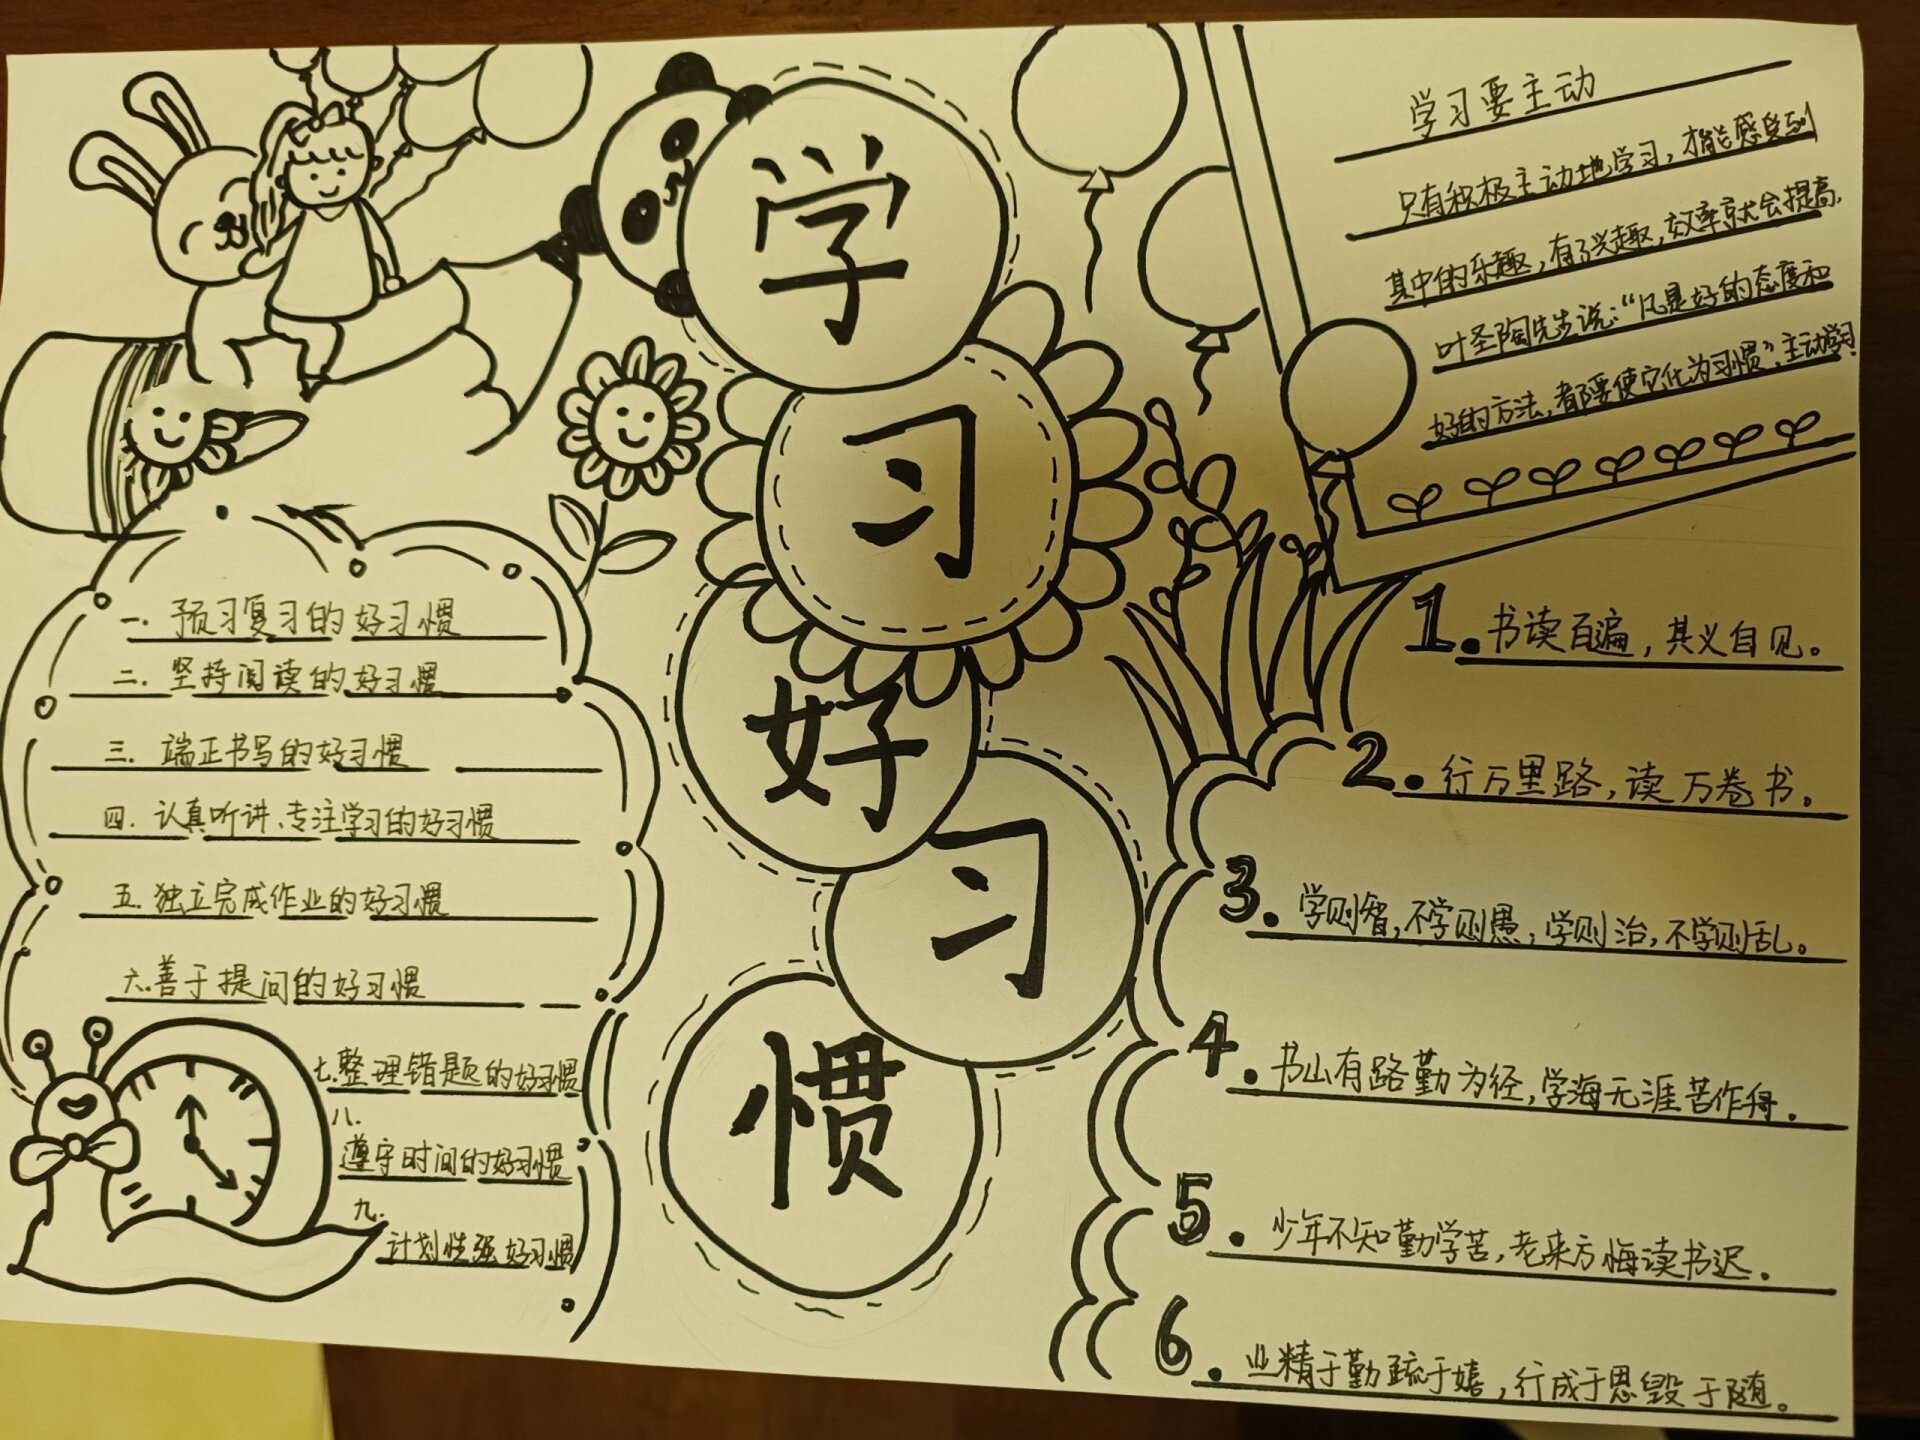 学
习
好
习
惯
学习要主动
只有积极主动地学习，才能感受到
其中的乐趣，有了兴趣，效率就会提高，
叶圣陶先生说：“凡是好的态度和
好的方法，都要使它化为习惯”，主动学习
一. 预习复习的好习惯
二. 坚持阅读的好习惯
三. 端正书写的好习惯
四. 认真听讲、专注学习的好习惯
五. 独立完成作业的好习惯
六. 善于提问的好习惯
七. 整理错题的好习惯
八.
遵守时间的好习惯
九.
计划性强好习惯
1. 书读百遍，其义自见。
2. 行万里路，读万卷书。
3. 学则智，不学则愚，学则治，不学则乱。
4. 书山有路勤为径，学海无涯苦作舟.
5. 少年不知勤学苦，老来方悔读书迟.
6. 业精于勤疏于嬉，行成于思毁于随。